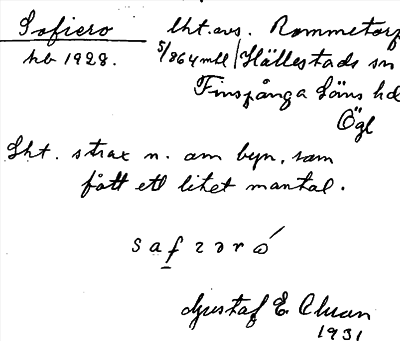 Sofiero lht.avs. Rommetorp
hb 1928. 5/864 mtl Hällestads sn
Finspånga läns hd
Ögl
Lht. strax n. om byn, som
fått ett litet mantal.
Gustaf E. Clman
1931